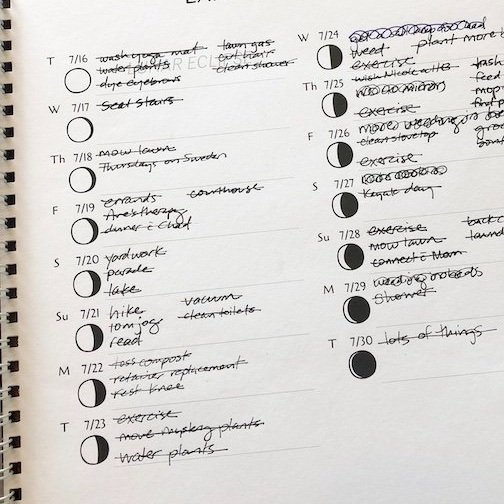 T 7/16 wash yoga mat lawn gas
water plants cut hair
dye eyebrows clean shower
W 7/17 Seal stairs
Th 7/18 mow lawn
Thursdays on Sweden
F 7/19 errands courthouse
Ane's therapy
dinner c Chad
S 7/20 yardwork
parade
lake
Su 7/21 hike vacuum
tom jog clean toilets
read
M 7/22 toss compost
retainer replacement
rest knee
T 7/23 exercise
move mystery plants
water plants
W 7/24
weed plant more
exercise
Th 7/25 wish Nicole a HB
mirrors feed
exercise
F 7/26 more weeding
clean stovetop
exercise
S 7/27
Kayak day
Su 7/28 exercise
mow lawn
connect c Mom
M 7/29 weeding
Shower
T 7/30 lots of things